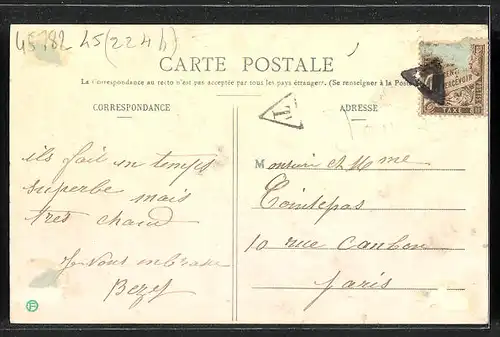 45782 45 (224 h)
CARTE POSTALE
La Correspondance au recto n'est pas acceptée par tous les pays étrangers. (Se renseigner à la Poste)
CORRESPONDANCE
ADRESSE
T
ils fait un temps
superbe mais
très chaud
Je vous embrasse
Monsieur et Mme
Cointepas
10 rue Cambon
Paris
PERCEVOIR
TAXE